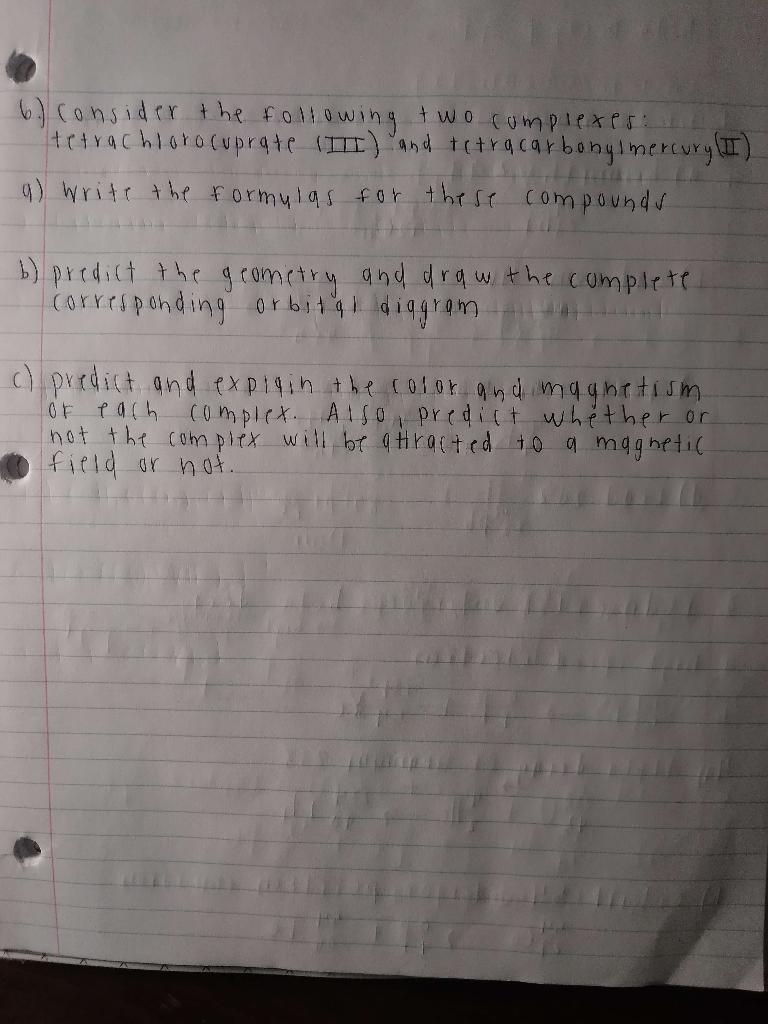 6.) Consider the following two complexes:
tetrachlorocuprate (III) and tetracarbonylmercury (II)
a) Write the formulas for these compounds
b) predict the geometry and draw the complete
corresponding orbital diagram
c) predict and explain the color and magnetism
of each complex. Also, predict whether or
not the complex will be attracted to a magnetic
field or not.